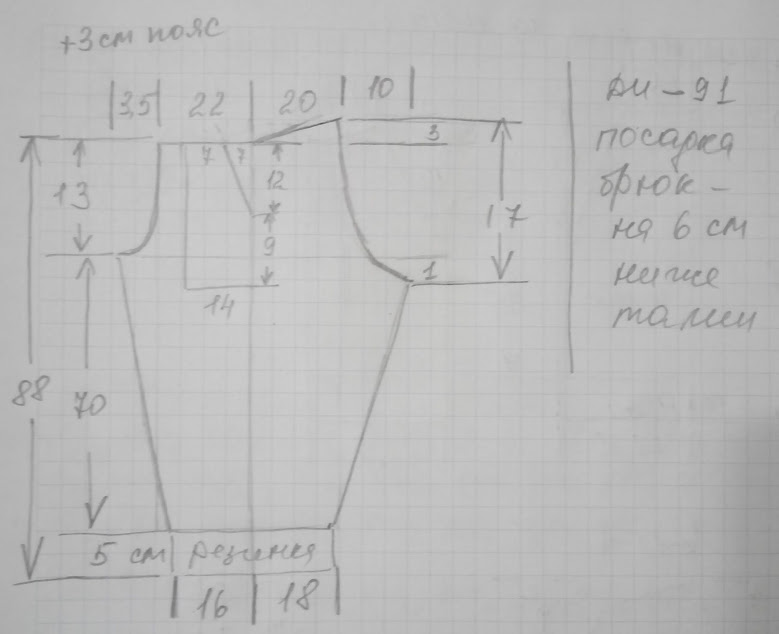 +3см пояс
3,5 22 20 10
3
7 7
12
13
17
9
1
14
88
70
5 см резинка
16 18
ДИ-91
посадка
брюк -
на 6 см
ниже
талии